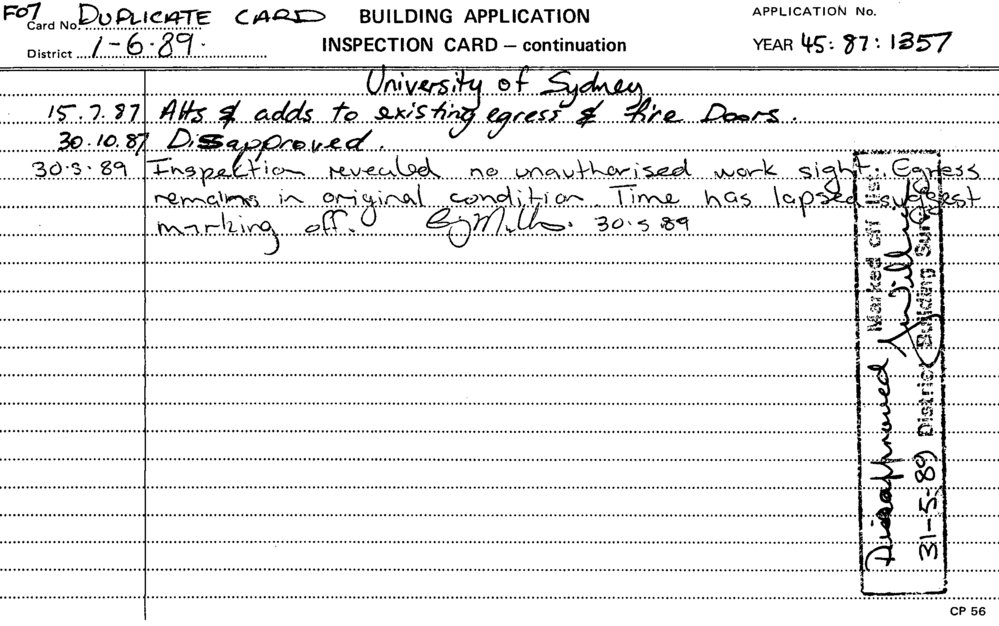 F07
Card No. DUPLICATE CARD
District 1-6-89.
BUILDING APPLICATION
INSPECTION CARD – continuation
APPLICATION No.
YEAR 45: 87: 1357
University of Sydney
15.7.87 Alts & adds to existing egress & fire Doors.
30.10.87 Disapproved.
30.5.89 Inspection revealed no unauthorised work sight. Egress
remains in original condition. Time has lapsed suggest
marking off. 30.5.89
Marked off list
Disapproved
31-5-89 District Building Surv
CP 56